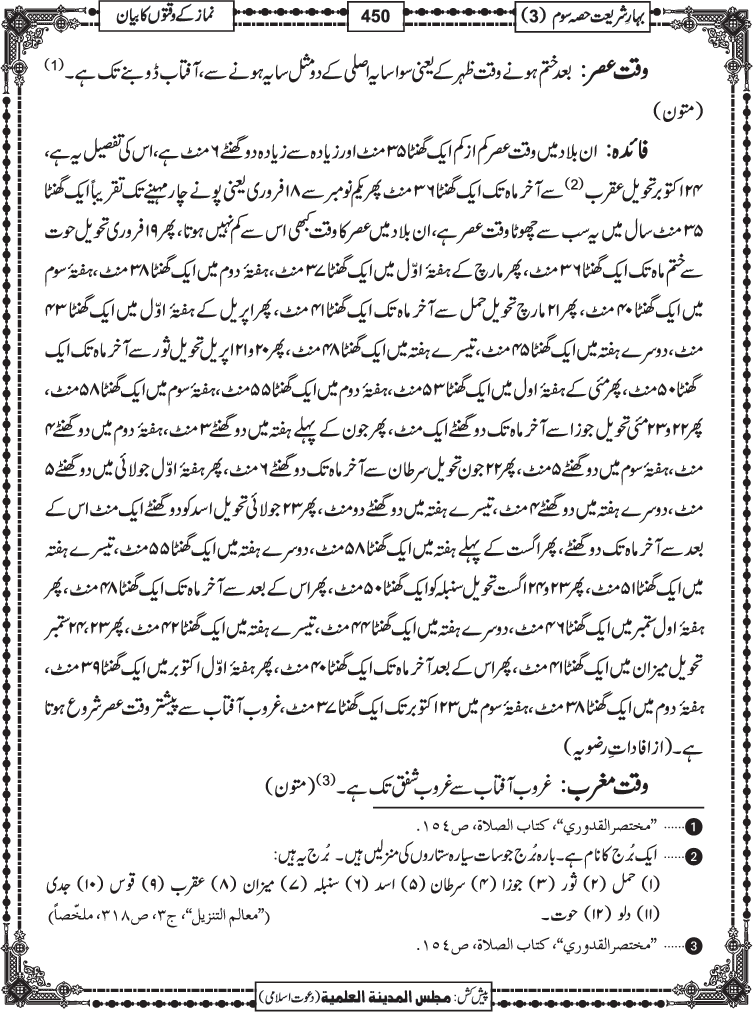 بہار شریعت حصہ سوم (3)
450
نماز کے وقتوں کا بیان
وقت عصر: بعد ختم ہونے وقت ظہر کے یعنی سوا سایہ اصلی کے دو مثل سایہ ہونے سے، آفتاب ڈوبنے تک ہے۔(1)
(متون)
فائدہ: ان بلاد میں وقت عصر کم از کم ایک گھنٹا ۳۵ منٹ اور زیادہ سے زیادہ دو گھنٹے ۶ منٹ ہے، اس کی تفصیل یہ ہے،
۲۴ اکتوبر تحویل عقرب(2) سے آخر ماہ تک ایک گھنٹا ۳۶ منٹ پھر یکم نومبر سے ۱۸ فروری یعنی پونے چار مہینے تک تقریباً ایک گھنٹا
۳۵ منٹ سال میں یہ سب سے چھوٹا وقت عصر ہے، ان بلاد میں عصر کا وقت کبھی اس سے کم نہیں ہوتا، پھر ۱۹ فروری تحویل حوت
سے ختم ماہ تک ایک گھنٹا ۳۶ منٹ، پھر مارچ کے ہفتۂ اوّل میں ایک گھنٹا ۳۷ منٹ، ہفتۂ دوم میں ایک گھنٹا ۳۸ منٹ، ہفتۂ سوم
میں ایک گھنٹا ۴۰ منٹ، پھر ۲۱ مارچ تحویل حمل سے آخر ماہ تک ایک گھنٹا ۴۱ منٹ، پھر اپریل کے ہفتۂ اوّل میں ایک گھنٹا ۴۳
منٹ، دوسرے ہفتہ میں ایک گھنٹا ۴۵ منٹ، تیسرے ہفتہ میں ایک گھنٹا ۴۸ منٹ، پھر ۲۰ و ۲۱ اپریل تحویل ثور سے آخر ماہ تک ایک
گھنٹا ۵۰ منٹ، پھر مئی کے ہفتۂ اول میں ایک گھنٹا ۵۳ منٹ، ہفتۂ دوم میں ایک گھنٹا ۵۵ منٹ، ہفتۂ سوم میں ایک گھنٹا ۵۸ منٹ،
پھر ۲۲ و ۲۳ مئی تحویل جوزا سے آخر ماہ تک دو گھنٹے ایک منٹ، پھر جون کے پہلے ہفتہ میں دو گھنٹے ۳ منٹ، ہفتۂ دوم میں دو گھنٹے ۴
منٹ، ہفتۂ سوم میں دو گھنٹے ۵ منٹ، پھر ۲۲ جون تحویل سرطان سے آخر ماہ تک دو گھنٹے ۶ منٹ، پھر ہفتۂ اوّل جولائی میں دو گھنٹے ۵
منٹ، دوسرے ہفتہ میں دو گھنٹے ۴ منٹ، تیسرے ہفتہ میں دو گھنٹے دو منٹ، پھر ۲۳ جولائی تحویل اسد کو دو گھنٹے ایک منٹ اس کے
بعد سے آخر ماہ تک دو گھنٹے، پھر اگست کے پہلے ہفتہ میں ایک گھنٹا ۵۸ منٹ، دوسرے ہفتہ میں ایک گھنٹا ۵۵ منٹ، تیسرے ہفتہ
میں ایک گھنٹا ۵۱ منٹ، پھر ۲۳ و ۲۴ اگست تحویل سنبلہ کو ایک گھنٹا ۵۰ منٹ، پھر اس کے بعد سے آخر ماہ تک ایک گھنٹا ۴۸ منٹ، پھر
ہفتۂ اول ستمبر میں ایک گھنٹا ۴۶ منٹ، دوسرے ہفتہ میں ایک گھنٹا ۴۴ منٹ، تیسرے ہفتہ میں ایک گھنٹا ۴۲ منٹ، پھر ۲۳، ۲۴ ستمبر
تحویل میزان میں ایک گھنٹا ۴۱ منٹ، پھر اس کے بعد آخر ماہ تک ایک گھنٹا ۴۰ منٹ، پھر ہفتۂ اوّل اکتوبر میں ایک گھنٹا ۳۹ منٹ،
ہفتۂ دوم میں ایک گھنٹا ۳۸ منٹ، ہفتۂ سوم میں ۲۳ اکتوبر تک ایک گھنٹا ۳۷ منٹ، غروب آفتاب سے پیشتر وقت عصر شروع ہوتا
ہے۔ (از افاداتِ رضویہ)
وقت مغرب: غروب آفتاب سے غروب شفق تک ہے۔(3) (متون)
1 ...... "مختصر القدوري"، كتاب الصلاة، ص١٥٤.
2 ...... ایک بُرج کا نام ہے۔ بارہ بُرج جو سات سیارہ ستاروں کی منزلیں ہیں۔ بُرج یہ ہیں:
(۱) حمل (۲) ثور (۳) جوزا (۴) سرطان (۵) اسد (۶) سنبلہ (۷) میزان (۸) عقرب (۹) قوس (۱۰) جدی
(۱۱) دلو (۱۲) حوت۔ ("معالم التنزيل"، ج٣، ص٣١٨، ملخّصاً)
3 ...... "مختصر القدوري"، كتاب الصلاة، ص١٥٤.
پیش کش: مجلس المدینة العلمیة (دعوت اسلامی)